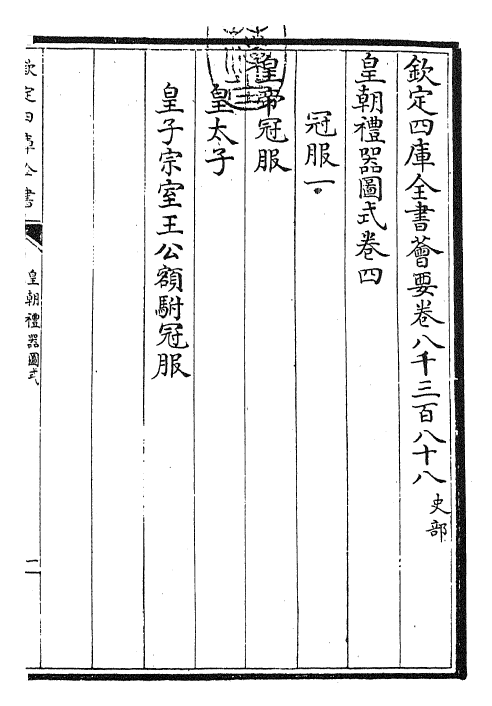 欽定四庫全書薈要卷八千三百八十八 史部
皇朝禮器圖式卷四
冠服一
皇帝冠服
皇太子
皇子宗室王公額駙冠服
欽定四庫全書
皇朝禮器圖式
一